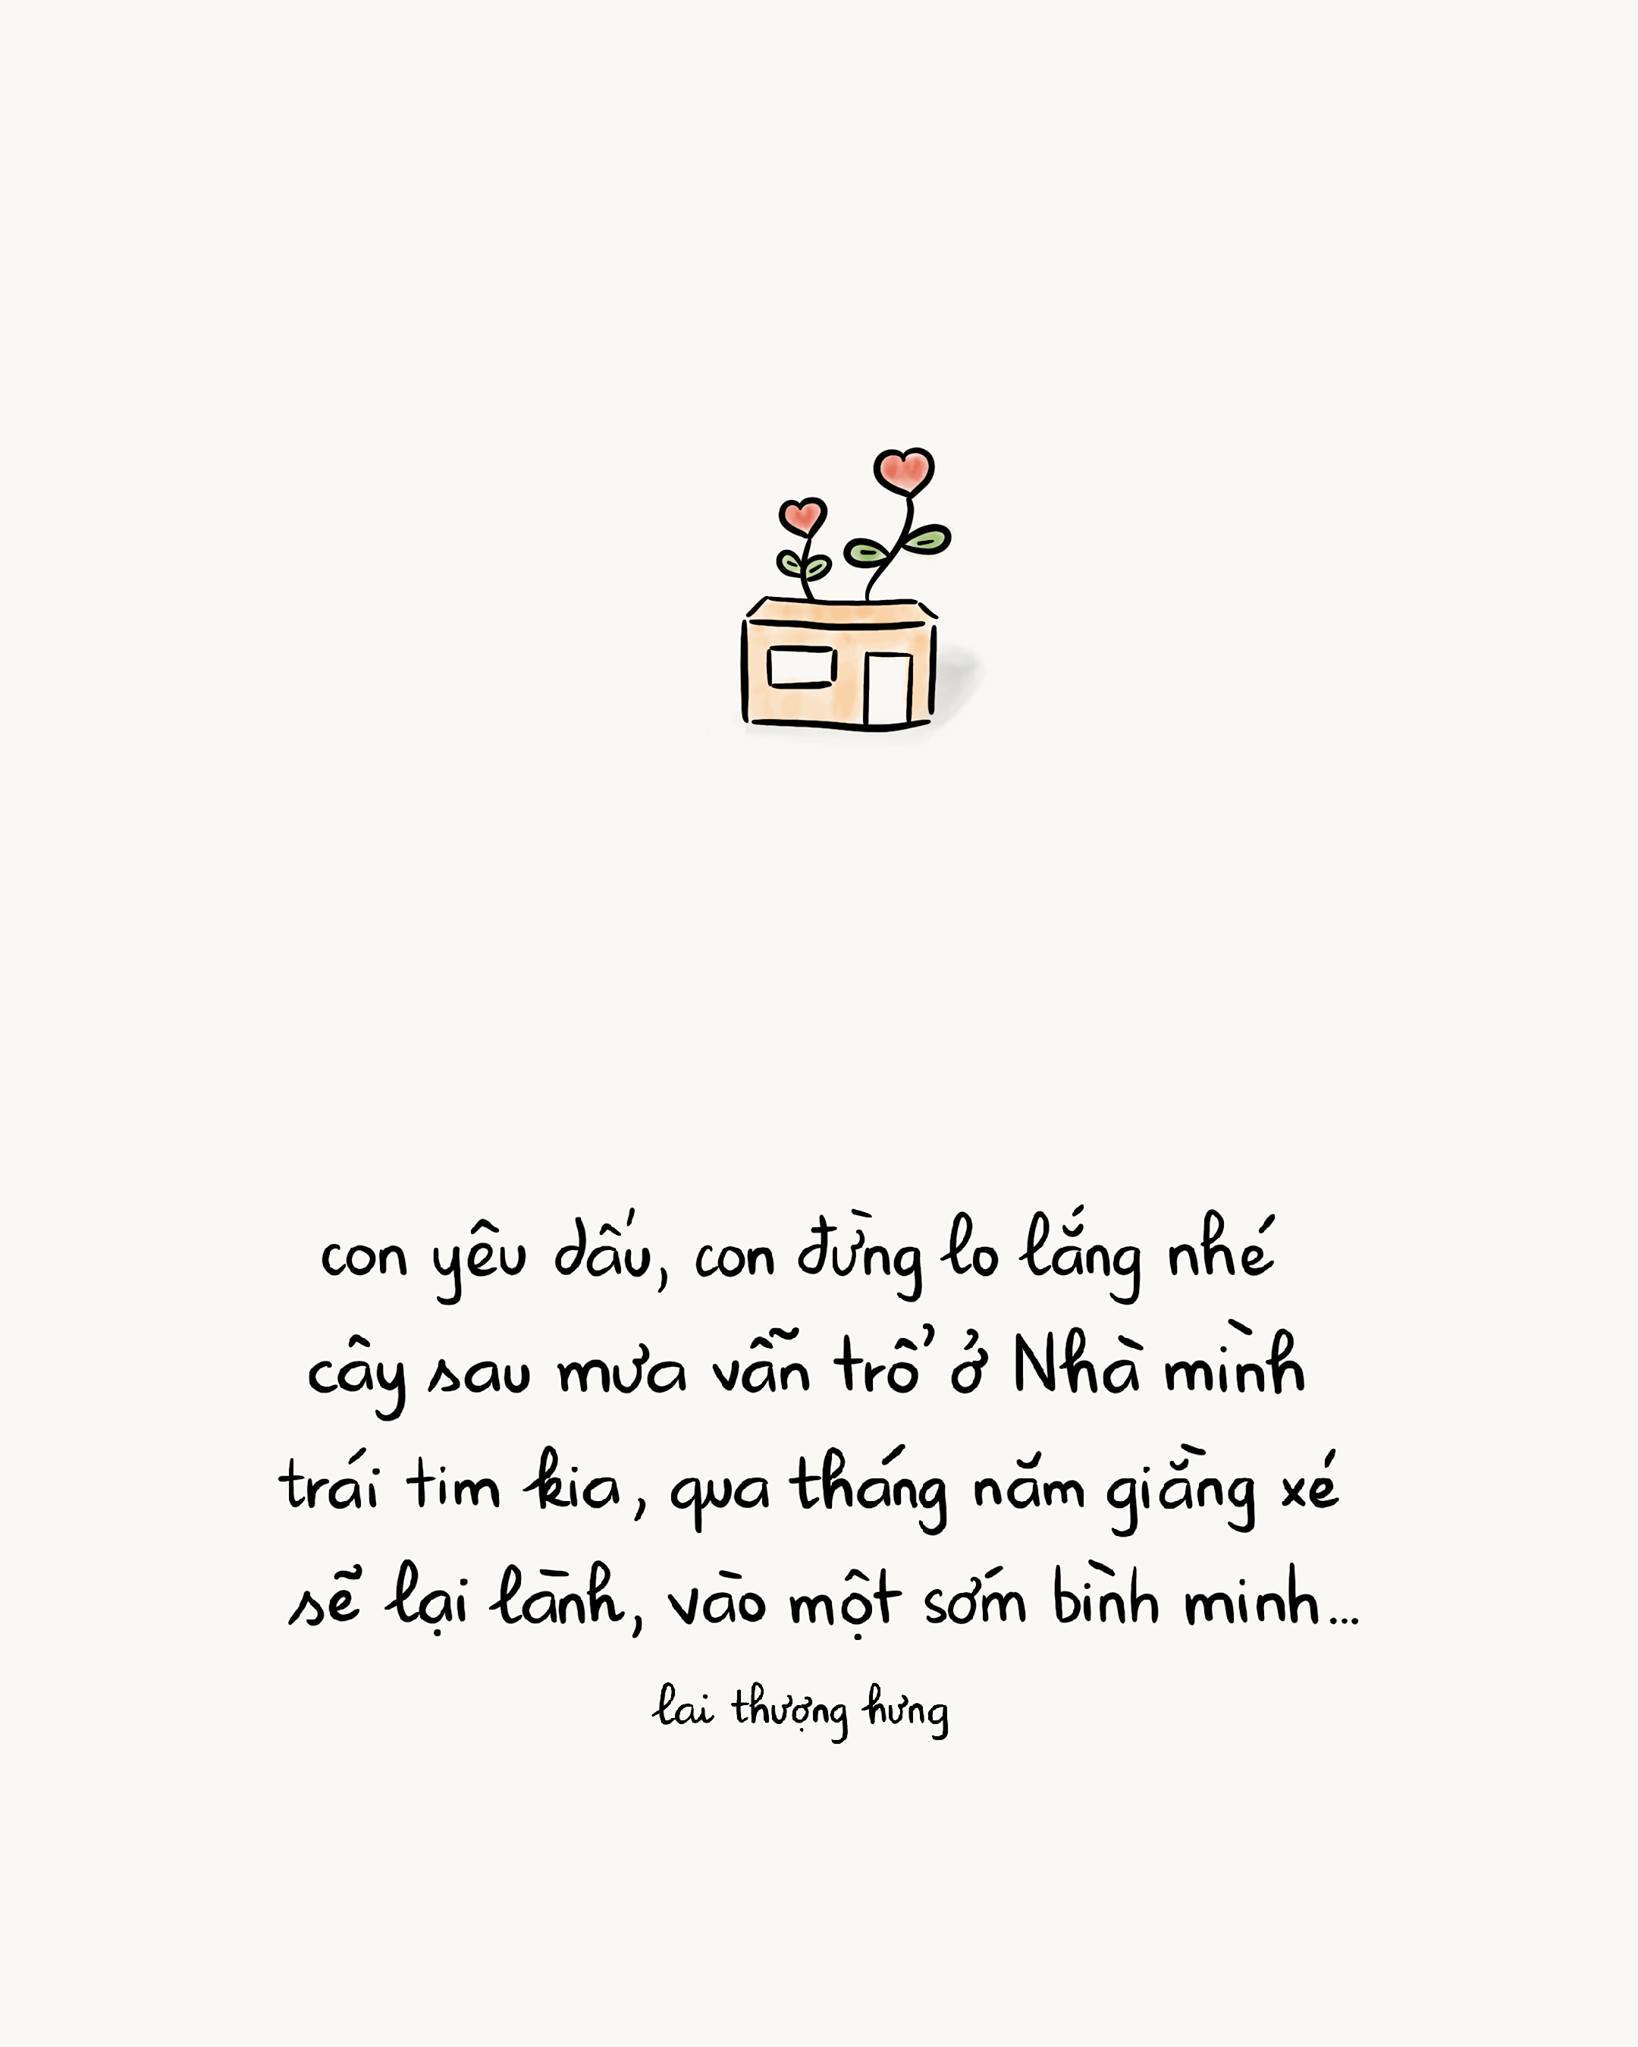 con yêu dấu, con đừng lo lắng nhé
cây sau mưa vẫn trổ ở Nhà mình
trái tim kia, qua tháng năm giằng xé
sẽ lại lành, vào một sớm bình minh...
lai thượng hưng